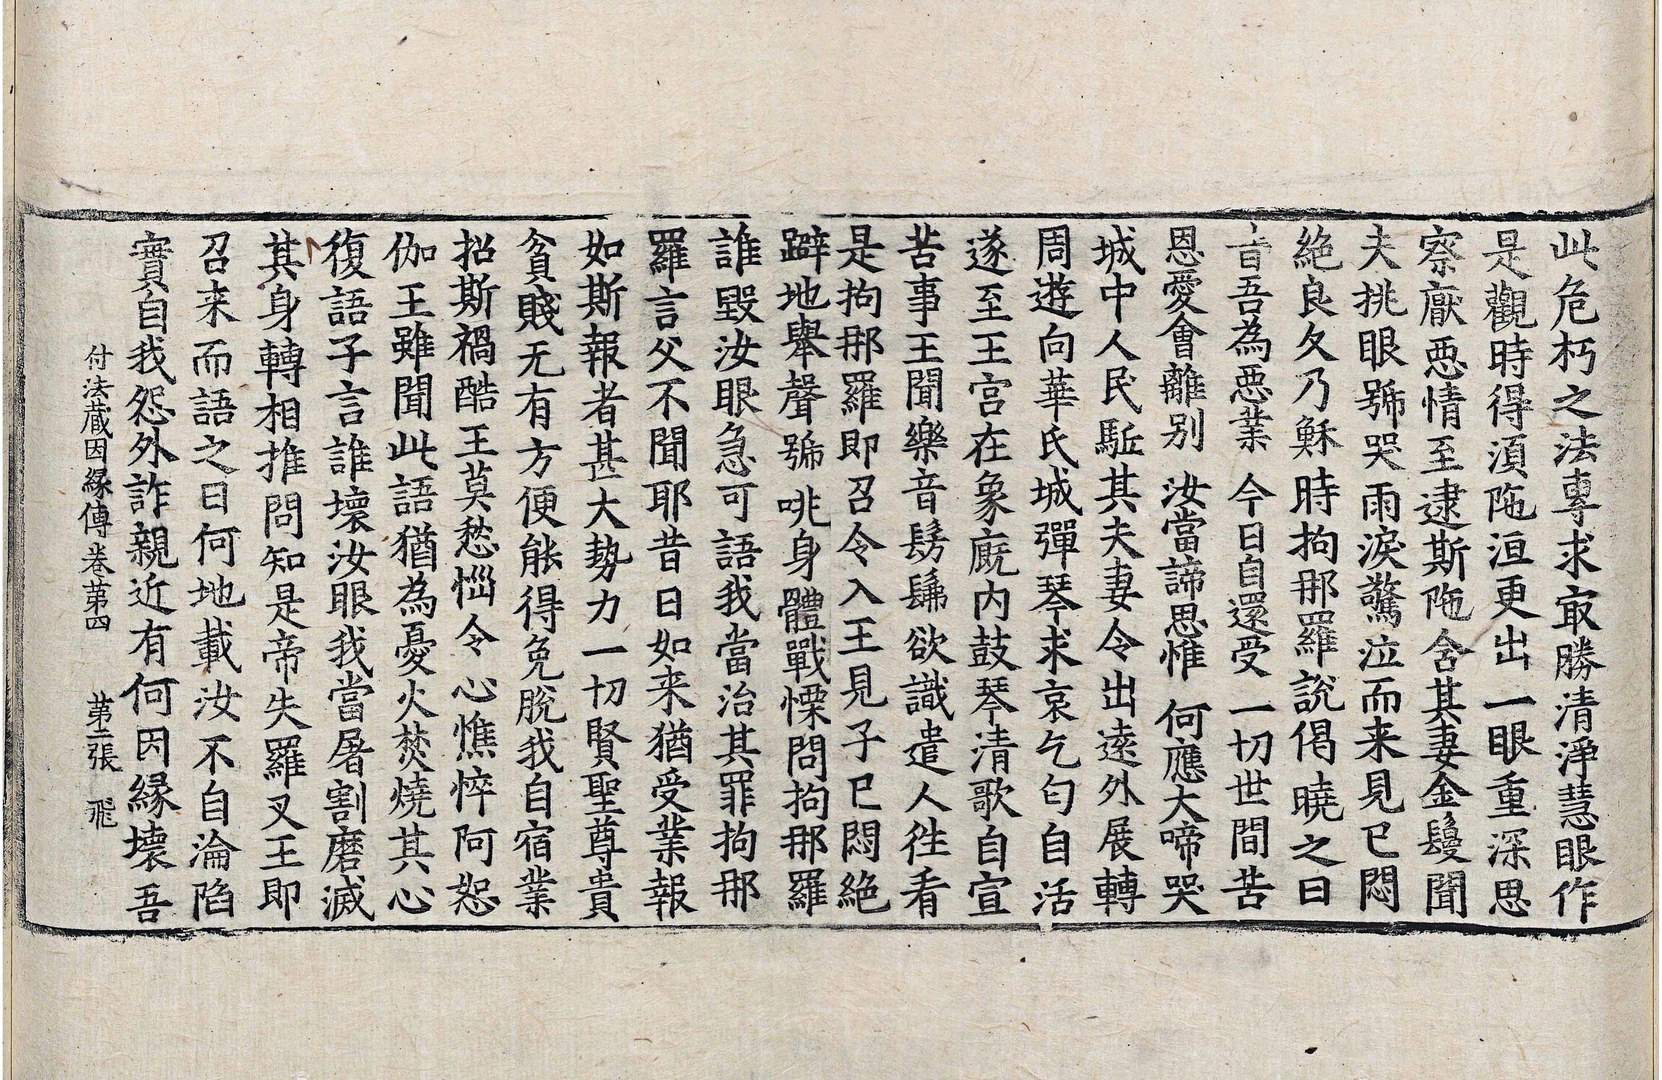 此危朽之法專求㝡勝清淨慧眼作
是觀時得湏陁洹更出一眼重深思
察厭惡情至逮斯陁含其妻金鬘聞
夫挑眼號哭雨淚驚泣而来見已悶
絶良久乃穌時拘那羅說偈曉之曰
昔吾為惡業 今日自還受 一切世間苦
恩愛會離别 汝當諦思惟 何應大啼哭
城中人民駈其夫妻令出逺外展轉
周遊向華氏城彈琴求哀乞匃自活
遂至王宮在象廐内鼓琴清歌自宣
苦事王聞樂音髣髴欲識遣人徃看
是拘那羅即召令入王見子已悶絶
躃地舉聲號咷身體戰慄問拘那羅
誰毀汝眼急可語我當治其罪拘那
羅言父不聞耶昔日如来猶受業報
如斯報者甚大勢力一切賢聖尊貴
貧賤无有方便能得免脫我自宿業
招斯禍酷王莫愁惱令心憔悴阿恕
伽王雖聞此語猶為憂火焚燒其心
復語子言誰壞汝眼我當屠割磨滅
其身轉相推問知是帝失羅叉王即
召来而語之曰何地載汝不自淪陷
實自我怨外詐親近有何因縁壞吾
付法蔵因縁傳卷第四 第二張 飛